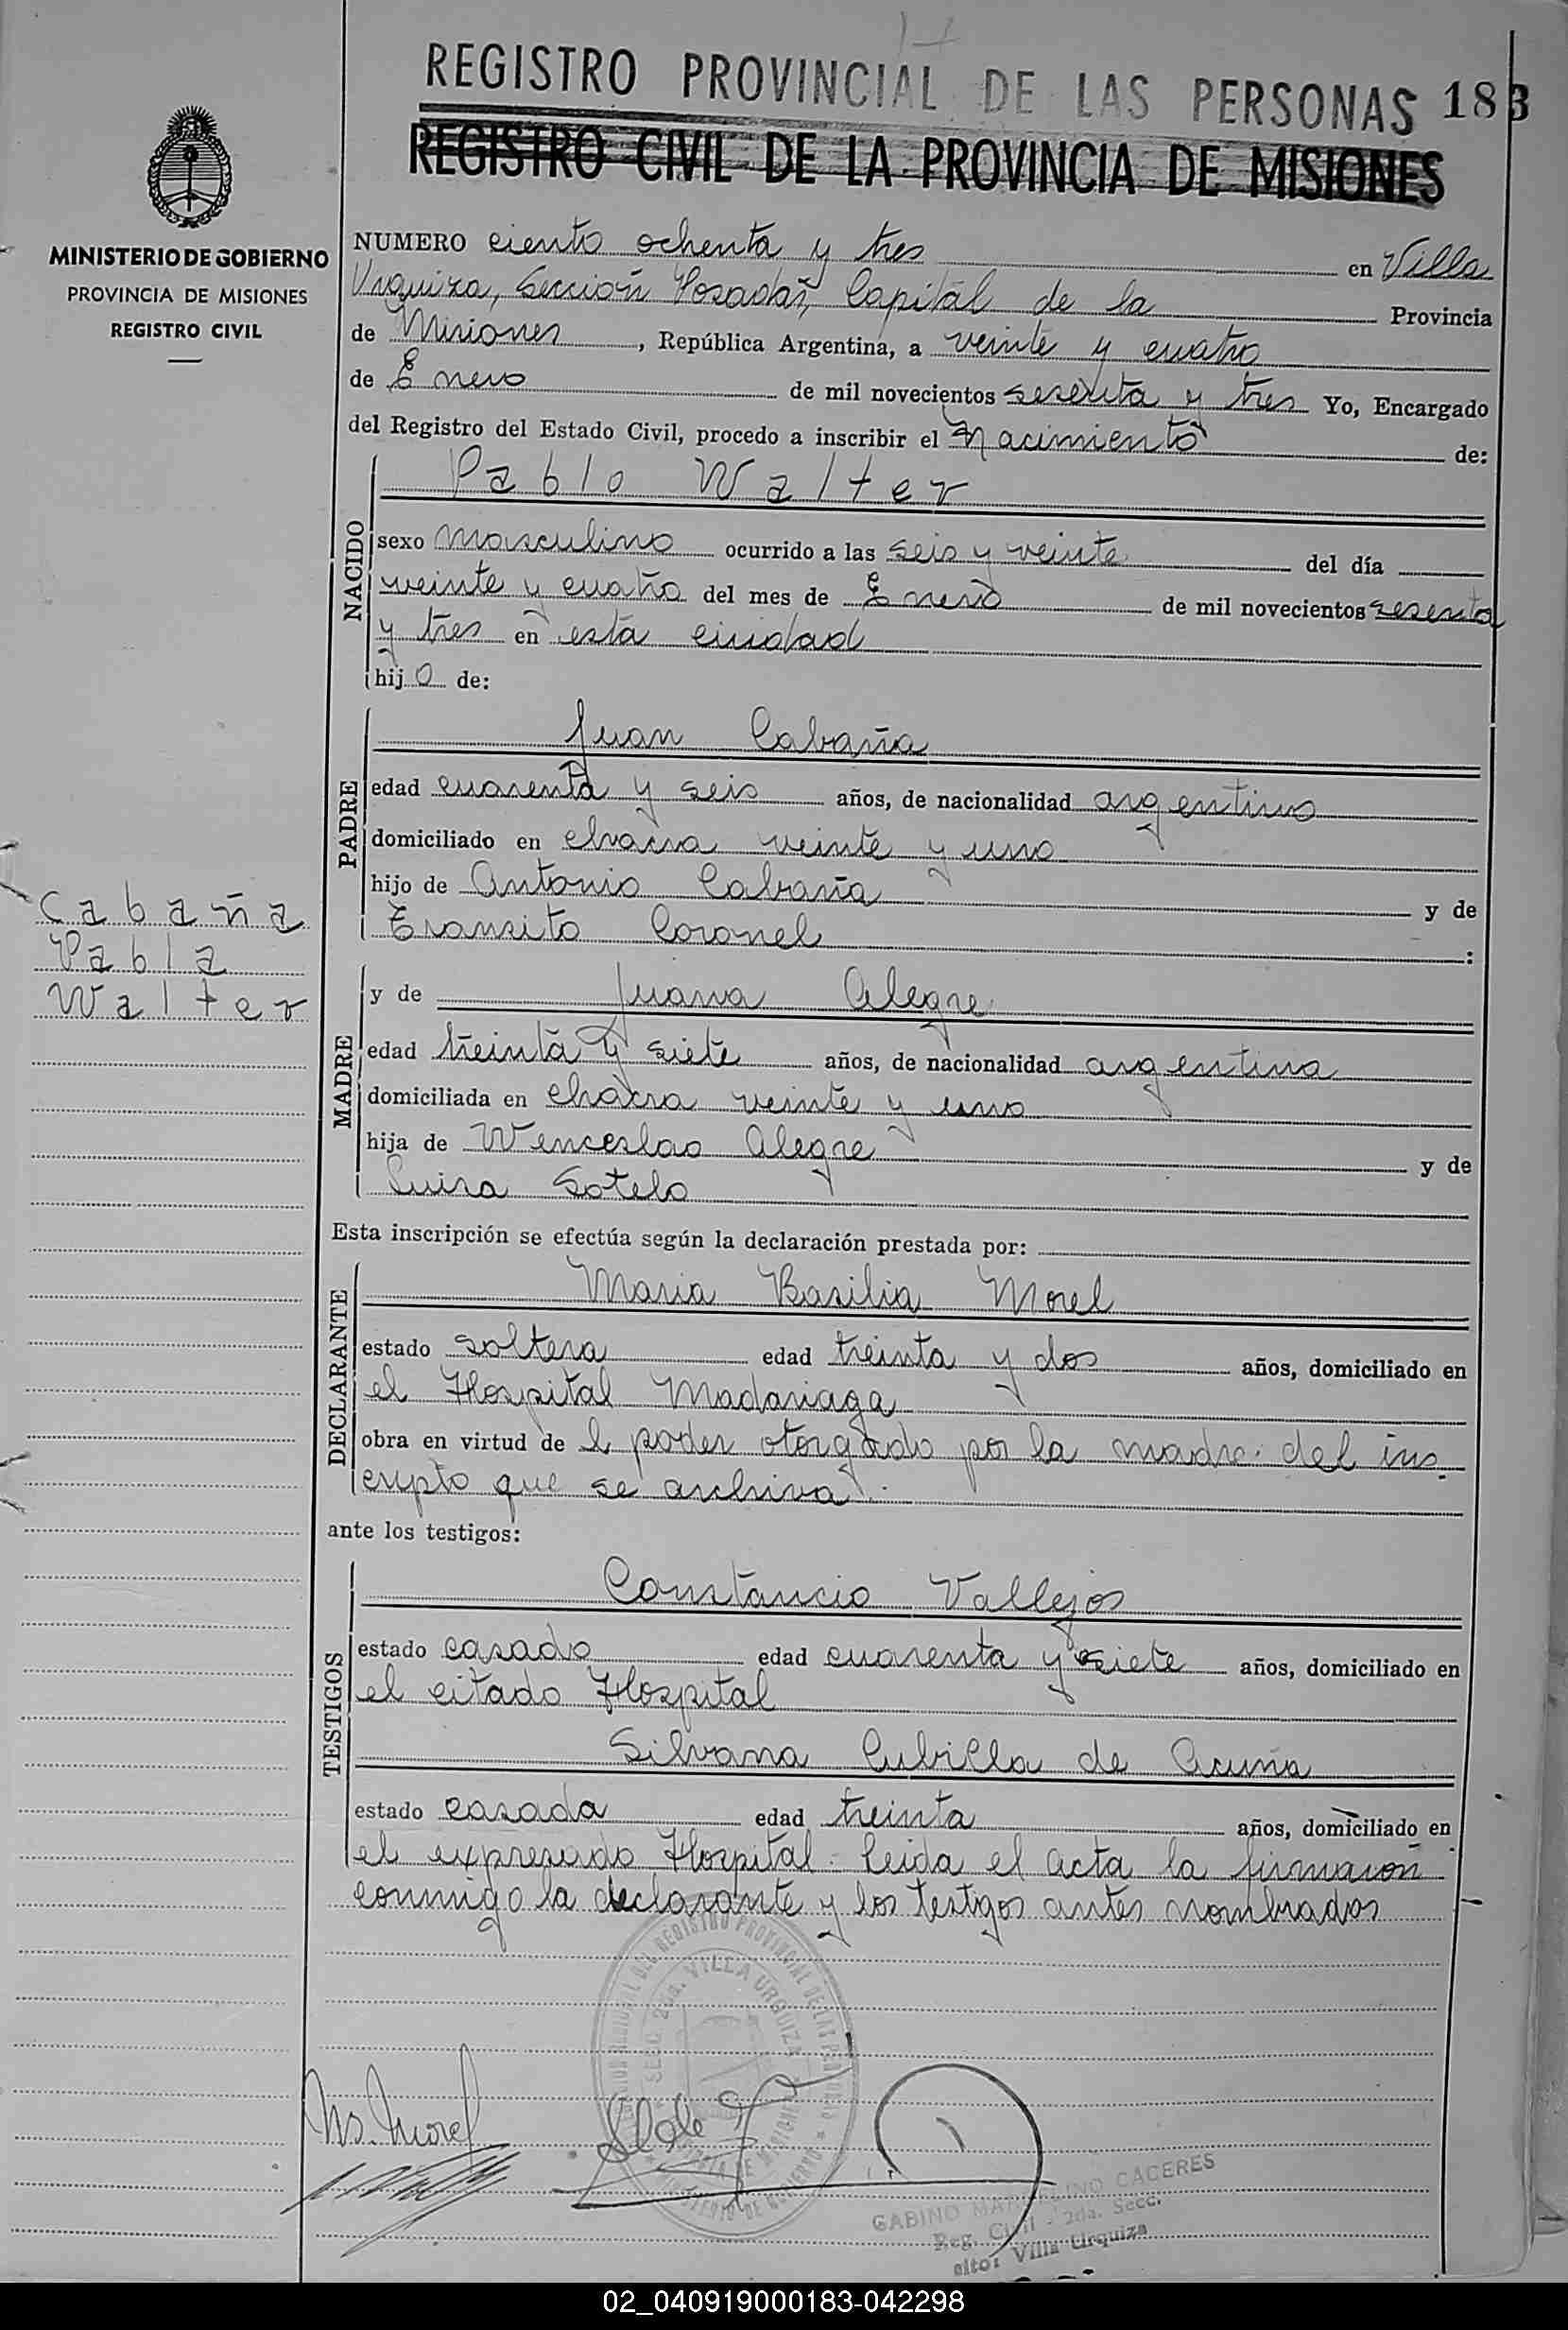 REGISTRO PROVINCIAL DE LAS PERSONAS 183
REGISTRO CIVIL DE LA PROVINCIA DE MISIONES
MINISTERIO DE GOBIERNO
PROVINCIA DE MISIONES
REGISTRO CIVIL
NUMERO ciento ochenta y tres en Villa
Urquiza, Sección Posadas, Capital de la Provincia
de Misiones, República Argentina, a veinte y cuatro
de Enero de mil novecientos sesenta y tres Yo, Encargado
del Registro del Estado Civil, procedo a inscribir el Nacimiento de:
NACIDO
Pablo Walter
sexo masculino ocurrido a las seis y veinte del día
veinte y cuatro del mes de Enero de mil novecientos sesenta
y tres en esta ciudad
hijo de:
PADRE
Juan Cabaña
edad cuarenta y seis años, de nacionalidad argentino
domiciliado en chacra veinte y uno
hijo de Antonio Cabaña y de
Transito Coronel :
Cabaña
Pabla
Walter
MADRE
y de Juana Alegre
edad treinta y siete años, de nacionalidad argentina
domiciliada en chacra veinte y uno
hija de Wenceslao Alegre y de
Luisa Sotelo
Esta inscripción se efectúa según la declaración prestada por:
DECLARANTE
Maria Basilia Morel
estado soltera edad treinta y dos años, domiciliado en
el Hospital Madariaga
obra en virtud de l poder otorgado por la madre del ins
cripto que se archiva.
ante los testigos:
TESTIGOS
Constancio Vallejos
estado casado edad cuarenta y siete años, domiciliado en
el citado Hospital
Silvana Cubilla de Acuña
estado casada edad treinta años, domiciliado en
el expresado Hospital. Leida el acta la firmaron
conmigo la declarante y los testigos antes nombrados
SECC. 2da. VILLA URQUIZA
MINISTERIO DE GOBIERNO
Ms. Morel
GABINO MARCELINO CACERES
Reg. Civil - 2da. Secc.
Villa Urquiza
02_040919000183-042298